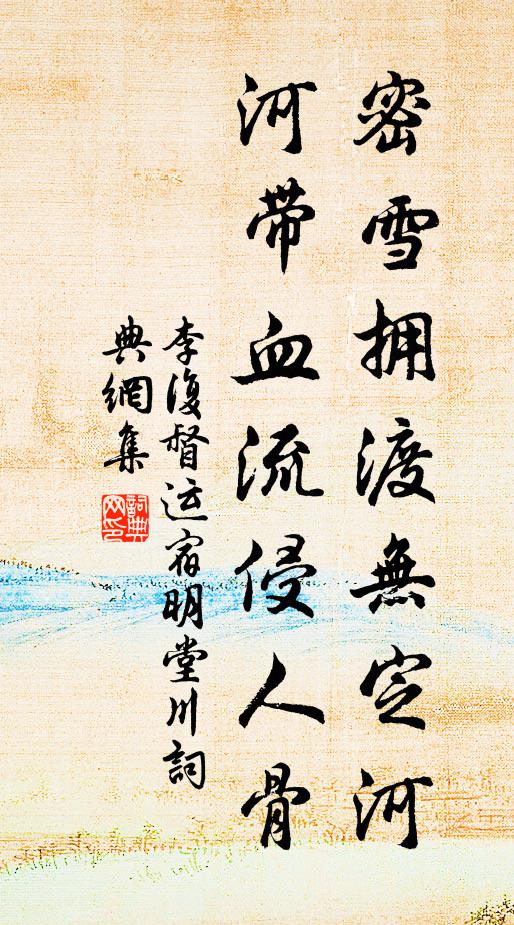 密雪拥渡無定河
河带血流侵人骨
李復督运宿明堂川詞
典網集
詞典網印